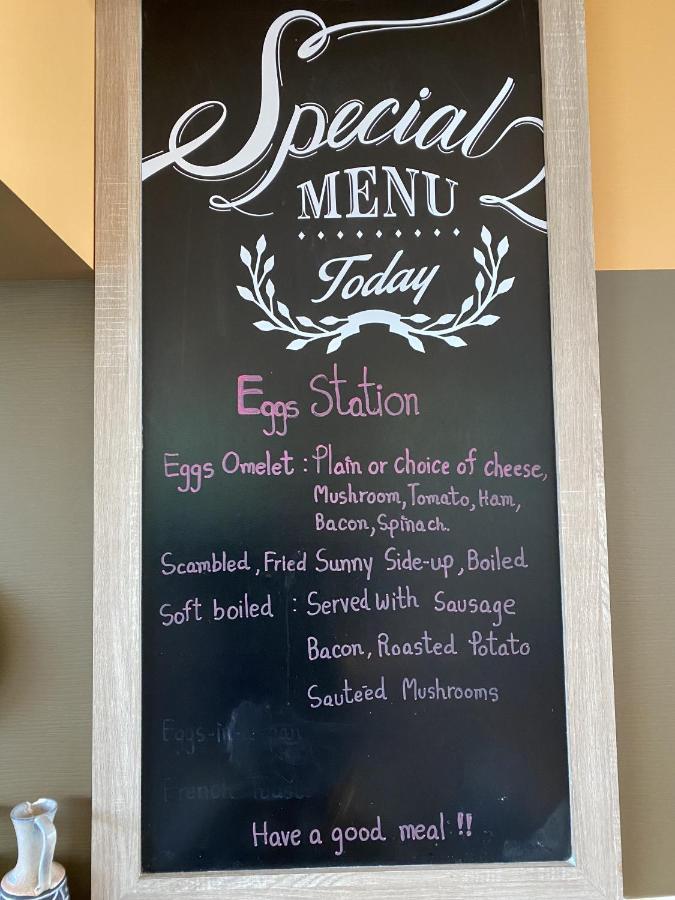 Special
MENU
Today
Eggs Station
Eggs Omelet : Plain or choice of cheese,
Mushroom, Tomato, Ham,
Bacon, Spinach.
Scambled, Fried Sunny Side-up, Boiled
Soft boiled : Served with Sausage
Bacon, Roasted Potato
Sauteed Mushrooms
Eggs-in-
French Toast
Have a good meal !!